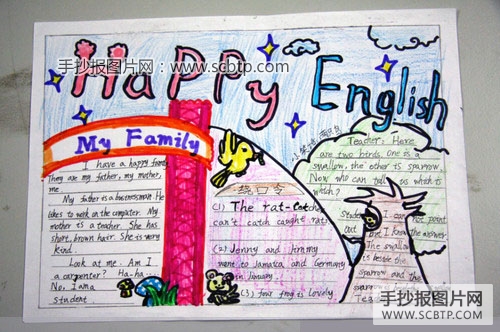 手抄报图片网：www.scbtp.com
Happy English
My Family
I have a happy family
They are my father, my mother,
me
My father is a businessman He
likes to work on the computer. My
mother is a teacher. She has
short brown hair. She is very
kind.
Look at me. Am I
a carpenter? Ha-ha
No. I am a
student
绕口令
(1) The rat-catcher
can't catch caught rats
(2) Jenny and Jimmy
went to Jamaica and Germany
in January
(3) four frog is lovely
小笑话:两只鸟
Teacher: Here
are two birds. One is a
swallow, the other is sparrow.
Now who can tell us which is
which?
Student: I can not point
out but I know the answer
The swallow
is beside the
sparrow and the
手抄报图片网
WWW.SCBTP.COM